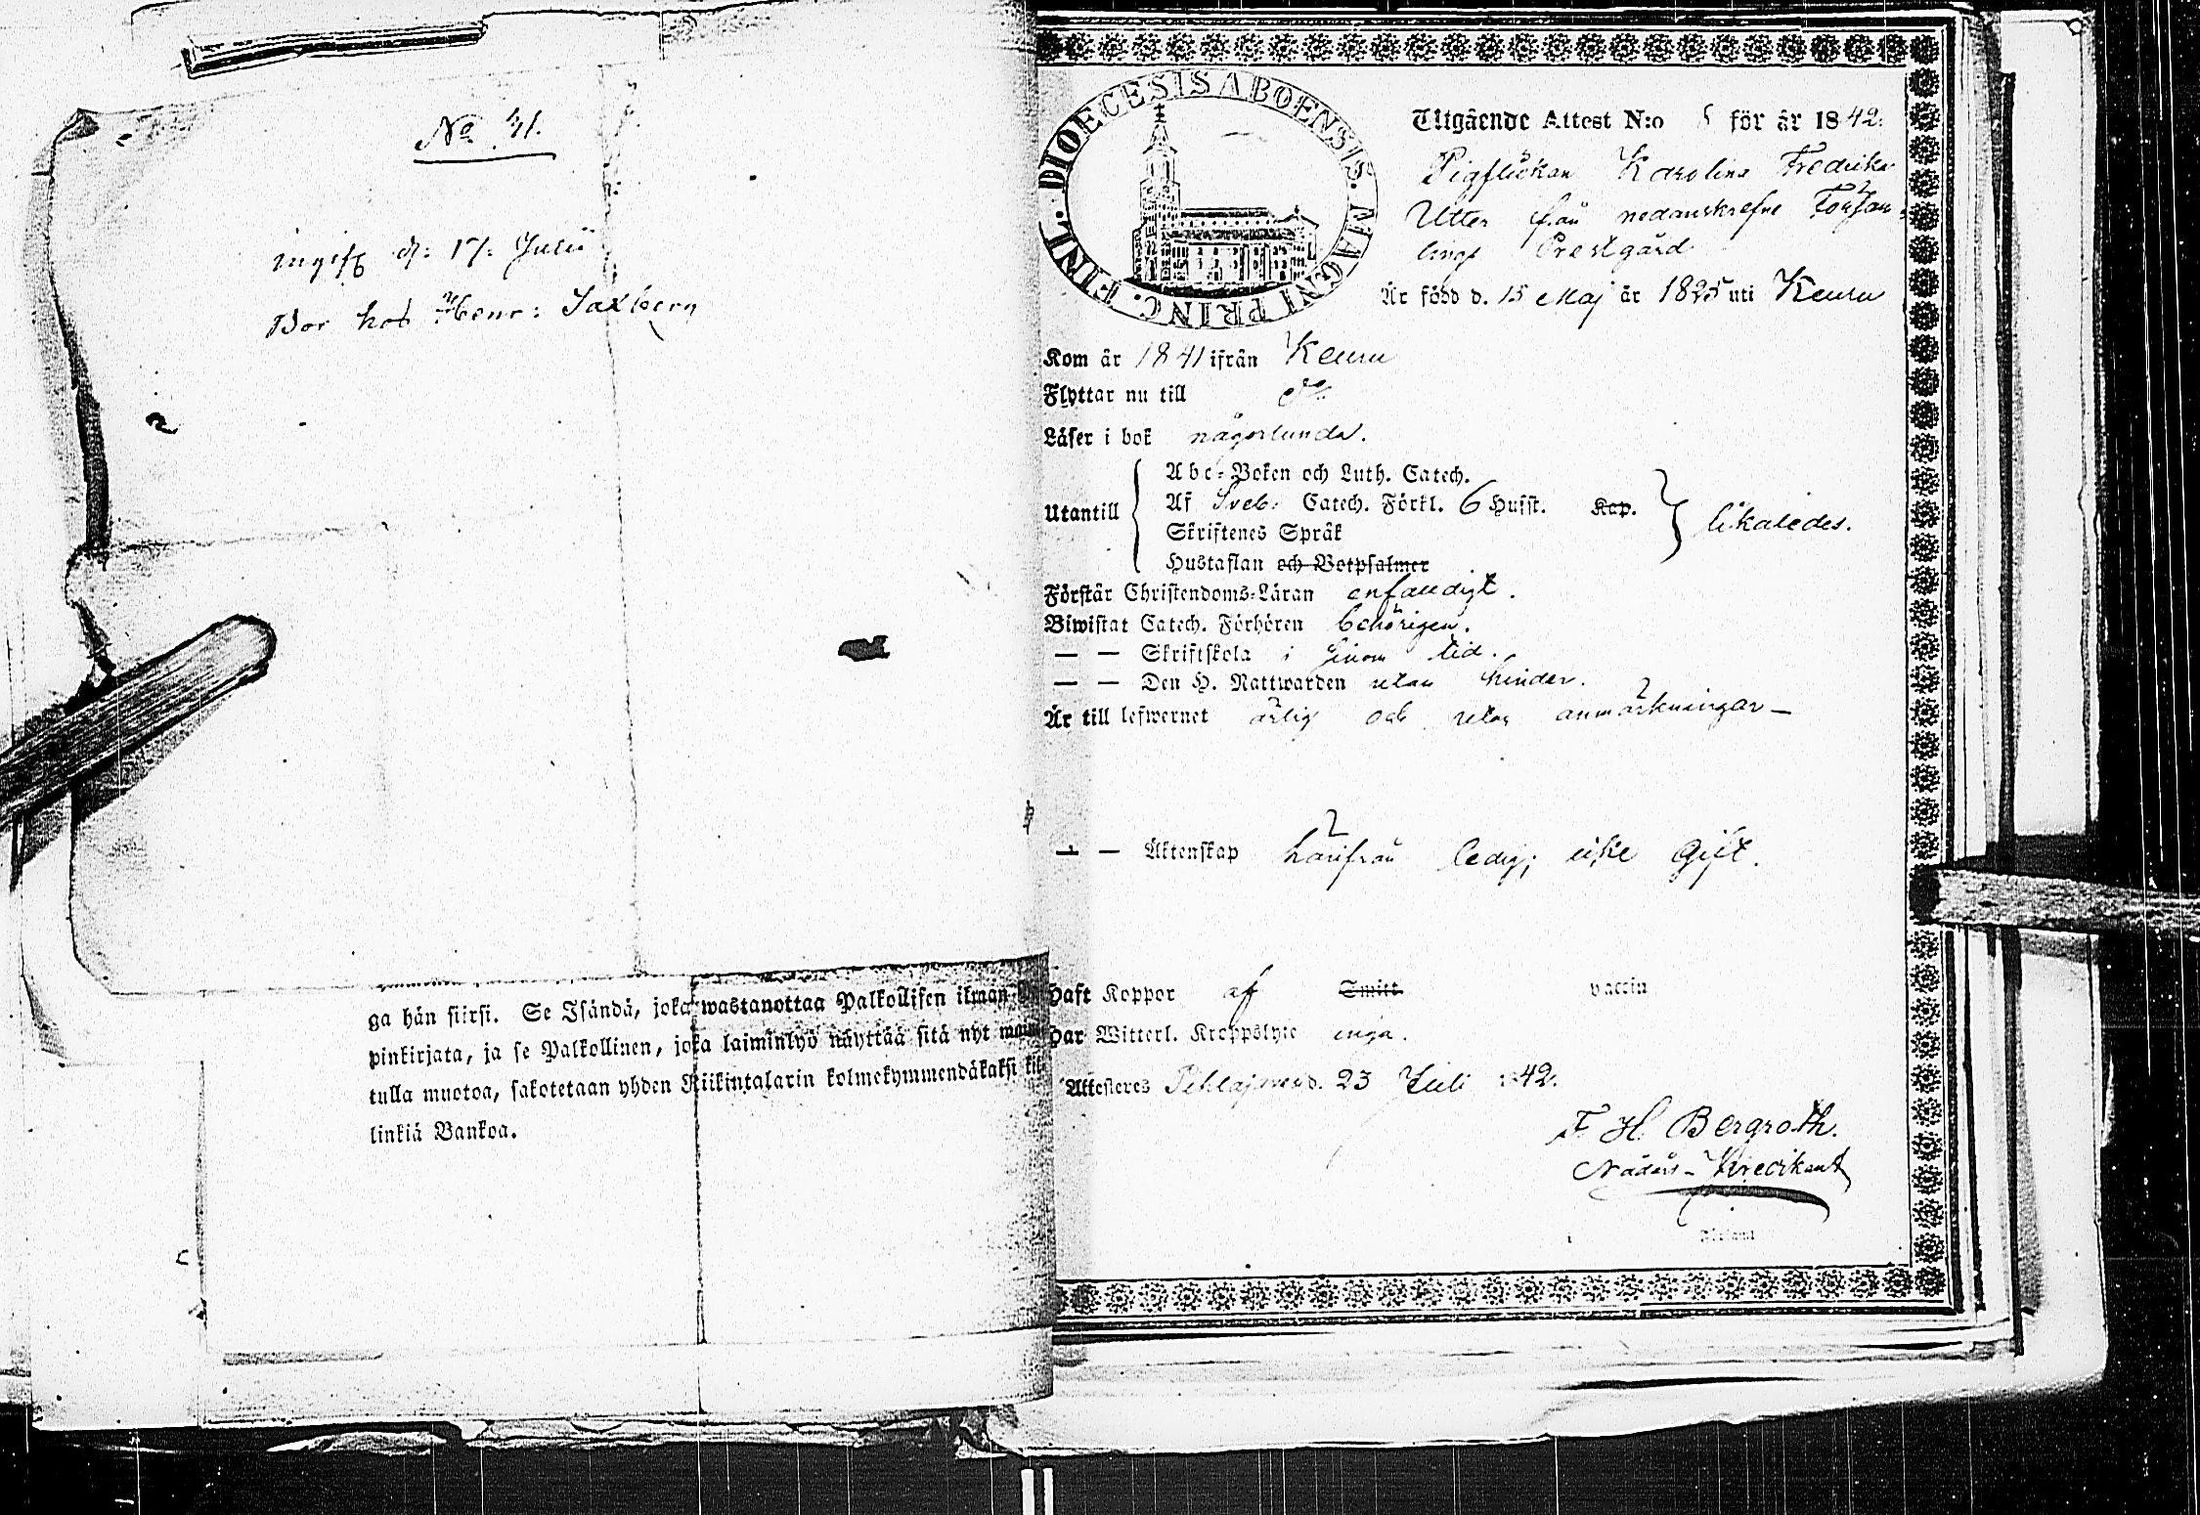 No 41.
ingift d: 17: Julii
Bor hos Henr: Saxberg
ga hän siirsi. Se Isändä, joka wastanottaa Palkollisen ilman
pinkirjata, ja se Palkollinen, joka laiminlyö näyttää sitä nyt
tulla muotoa, sakotetaan yhden Riikintalarin kolmekymmendäkaksi
linkiä Bankoa.
DIOECESIS ABOENSIS. MAGNI PRINC. FINL.
Utgående Attest N:o för år 1842.
Pigflickan Karolina Fredrika
Utter från nedanskrefne
Prestgård
Är född d. 15 Maj år 1825 uti Keuru
Kom år 1841 ifrån Keuru
Flyttar nu till
Läser i bok någorlunda.
Abc-Boken och Luth. Catech.
Utantill Af Sveb: Catech. Förkl. 6 Hufst. Kap. likaledes.
Skriftenes Språk
Hustaflan och Botpsalmer
Förstår Christendoms-Läran enfaldigt.
Biwistat Catech. Förhören behörigen.
— — Skriftskola i sinom tid.
— — Den H. Nattwarden utan hinder.
Är till lefwernet ärlig och utan anmärkningar —
— — Äktenskap härifrån ledig; icke Gift.
Haft Koppor af Smitt vaccin
Har Witterl. Kroppslyte inga.
Attesteres d. 23 Juli 1842.
F. H. Bergroth.
Nådårs-Predikant